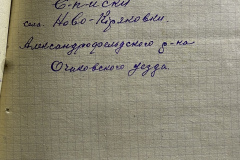 Списки
села Ново-Кіряковки
Александродольдского р-на
Очаковского уезда.